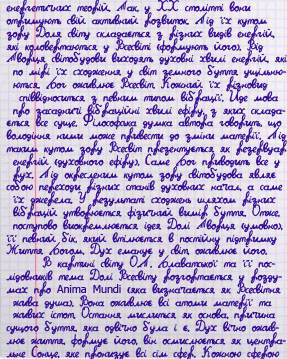 енергетичних теорій. Так, у XX столітті вони
отримують свій активний розвиток. Під їх кутом
зору Доля світу складається з різних видів енергій,
які конвертаються у Всесвіті (формують його). Від
Творця світобудови виходять духовні хвилі енергій, які
по мірі їх сходження у світ земного буття ущільню-
ються. Бог оживлює Всесвіт. Кожний їх різновид
співвідноситься з певним типом вібрації. Іде мова
про засадничі вібраційні хвилі ефіру, з яких склада-
ється все суще. Філософська думка автора говорить, що
володіння ними може привести до зміни матерії. Під
таким кутом зору Всесвіт презентується як резервуар
енергій (духовного ефіру). Саме Бог приводить все у
рух. Під окресленим кутом зору світобудова являє
собою переходи різних станів духовних начал, а саме
їх джерела. У результаті сходжень шляхом різних
вібрацій утворюється фізичний вимір буття. Отже,
поступово викремлюється ідея Долі Творця (умовно),
її певний бік, який втілюється в постійну підтримку
Життя Богом. Дух еманує у світ, оживлює його.
В картині світу О.П. Блаватської та її пос-
лідовників тема Долі Всесвіту розгортається у розду-
мах про Anima Mundi (яка визначається як Всесвітня
жива душа). Вона оживлює всі атоми матерії та
живих істот. Остання мислиться як основа, причина
сущого буття, яка одвічно була і є. Дух вічно ожив-
лює життя, формує його, він осмислюється як централь-
не Сонце, яке пронизує всі сім сфер. Кожною сферою